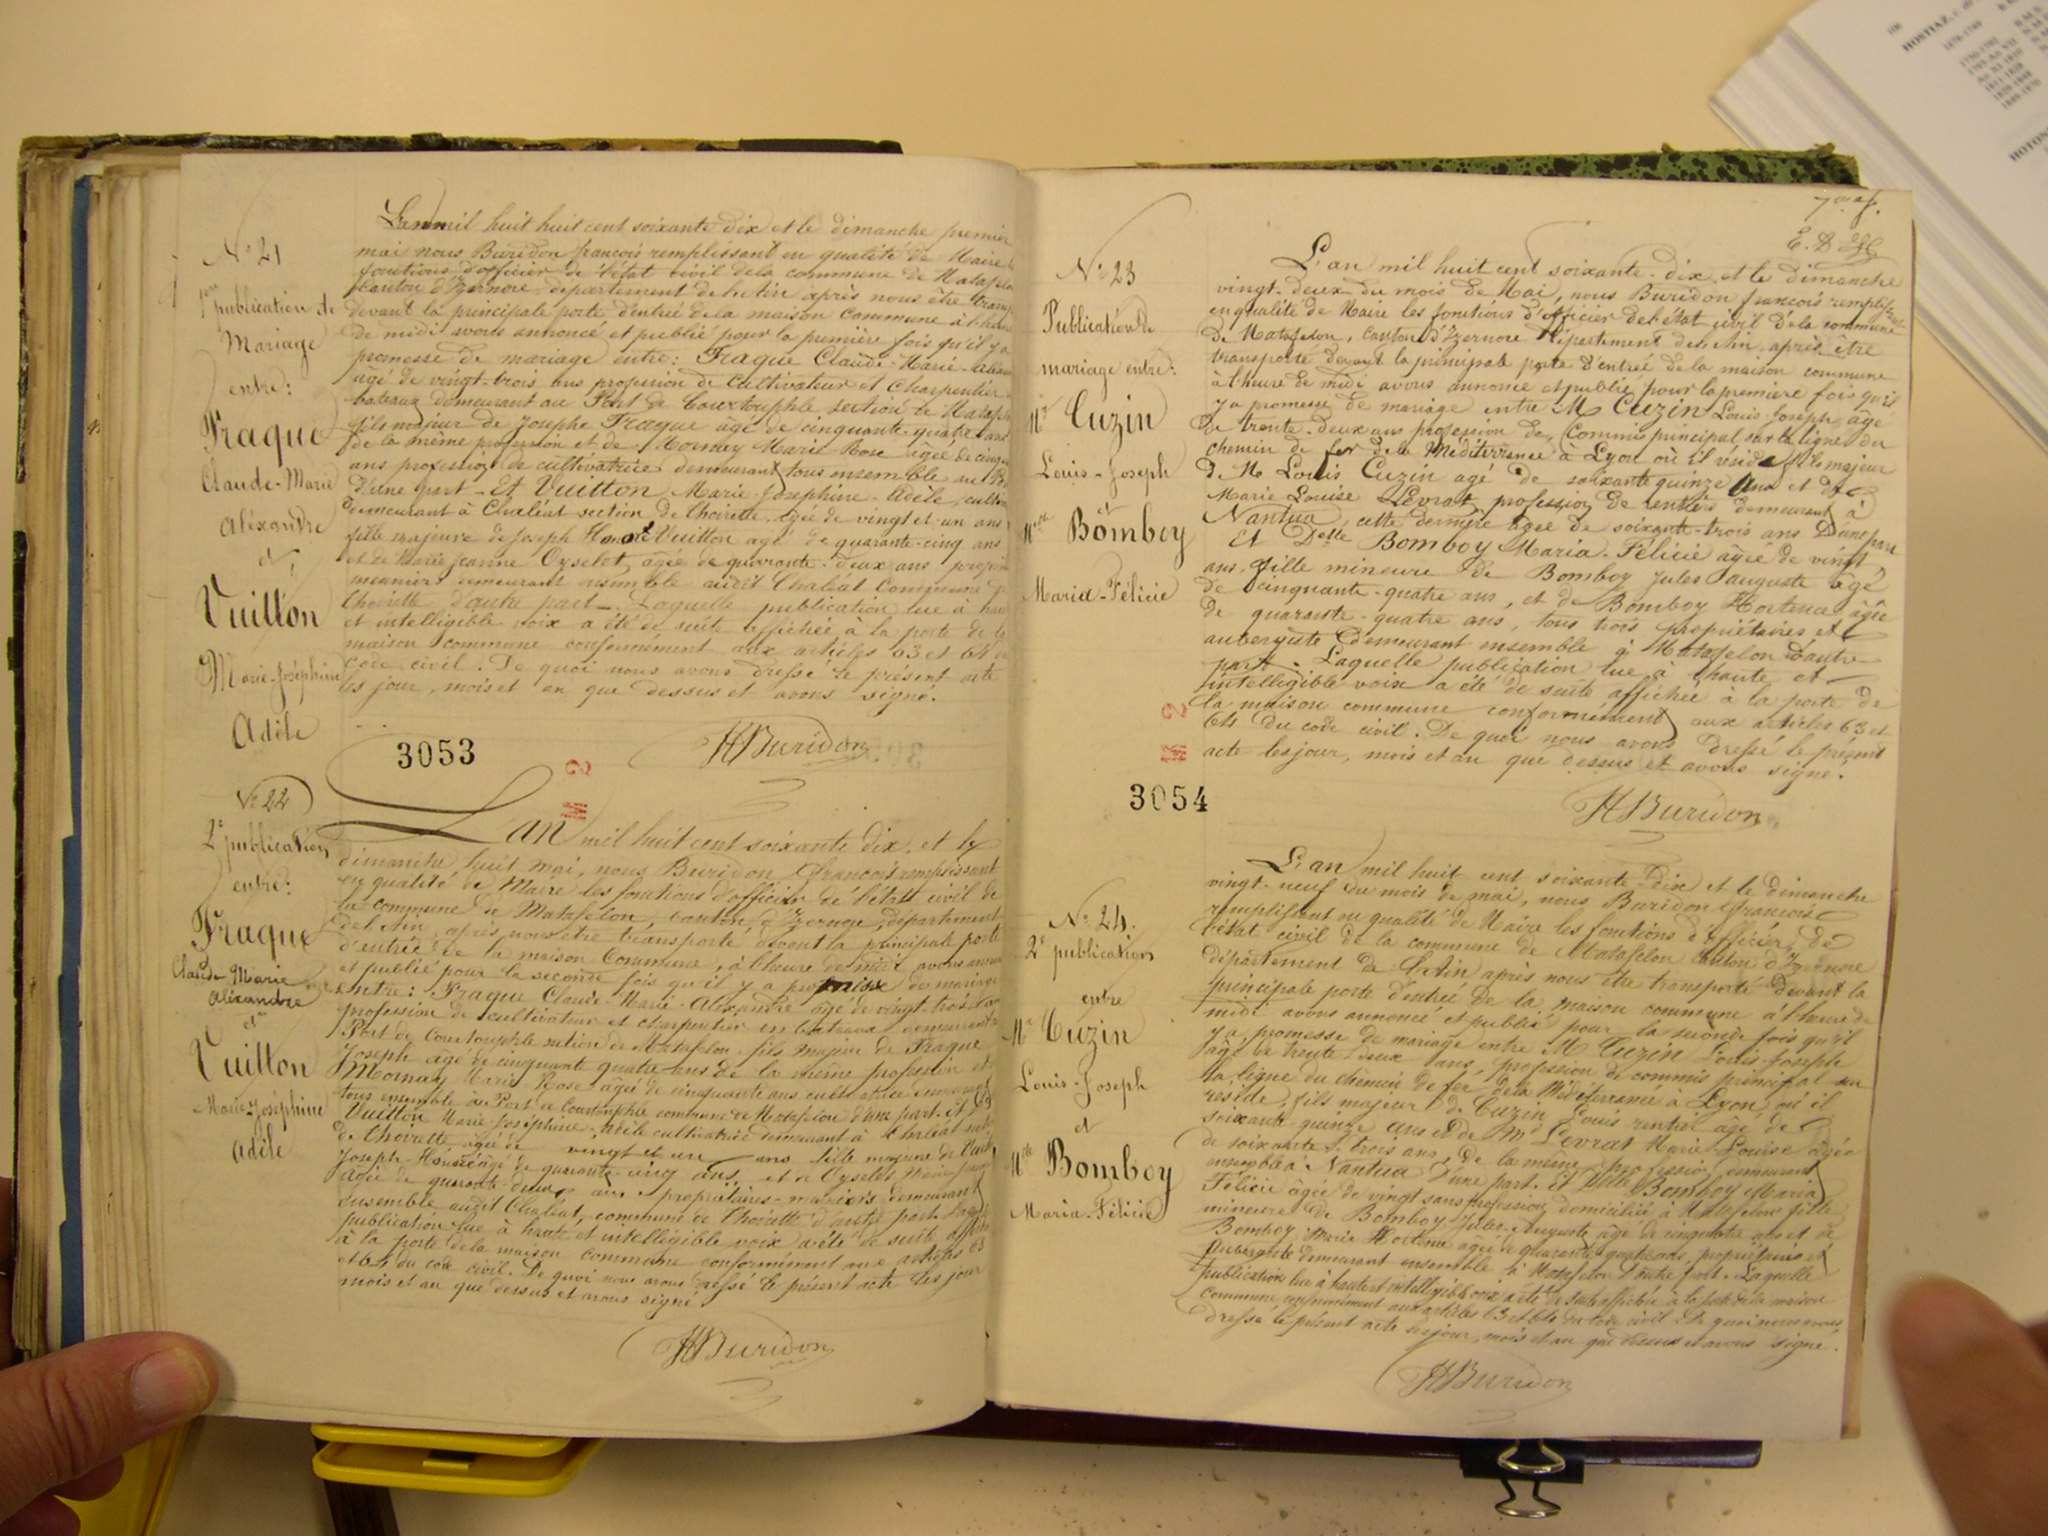 N° 21
1ère publication de
Mariage
entre:
Fraque
Claude-Marie
Aléxandre
et
Vuitton
Marie-Joséphine
Adèle
L'an mil huit huit cent soixante dix et le dimanche premier
mai nous Buridon françois remplissant en qualité de Maire
fonctions d'officier de l'état civil de la commune de Matafelon
canton d'Izernore, département de l'Ain après nous être
devant la principale porte d'entrée de la maison commune à l'heure
de midi avons annoncé et publié pour la première fois qu'il y a
promesse de mariage entre: Fraque Claude-Marie
âgé de vingt-trois ans profession de cultivateur et charpentier
bateaux demeurant au Port de Courtouphle section de
fils majeur de Josephe Fraque âgé de cinquante-quatre ans
de la même profession et de Mornay Marie Rose agée de
ans profession de cultivatrice demeurant tous ensemble au
d'une part - Et Vuitton Marie Joséphine-Adèle,
demeurant à Chaléat section de Thoirette, agée de vingt et un ans
fille majeure de Joseph Honoré Vuitton agé de quarante-cinq ans
et de Marie jeanne Oyselet, agée de quarante-deux ans
meuniers demeurant ensemble audit Chaléat Commune
Thoirette d'autre part - Laquelle publication lue à
et intelligible voix a été de suite affichée à la porte de
maison commune conformément aux articles 63 et 64
code civil. De quoi nous avons dressé le présent acte
les jour, mois et an que dessus et avons signé.
3053
Buridon
N° 22
2e publication
entre:
Fraque
Claude Marie
Aléxandre
et
Vuitton
Marie-Joséphine
Adèle
L'an mil huit cent soixante dix, et le
dimanche huit mai, nous Buridon François remplissant
en qualité de Maire les fonctions d'officier de l'état civil de
la commune de Matafelon, canton d'Izernore, département
de l'Ain, après nous être transporté devant la principale porte
d'entrée de la maison Commune, à l'heure de midi avons
et publié pour la seconde fois qu'il y a promesse de mariage
Entre: Fraque Claude-Marie-Aléxandre agé de vingt-trois ans
profession de cultivateur et charpentier en bateaux demeurant
Port de Courtouphle section de Matafelon fils majeur de Fraque
Joseph agé de cinquante quatre ans de la même profession et
Mornay Marie Rose agée de cinquante ans cultivatrice demeurant
tous ensemble au Port de Courtouphle commune de Matafelon d'une part. Et
Vuitton Marie Joséphine-Adèle cultivatrice demeurant à Chaléat
de Thoirette agée de vingt et un ans fille majeure de
Joseph-Honoré agé de quarante-cinq ans et d'Oyselet
agée de quarante-deux ans, propriétaires-meuniers demeurant
ensemble audit Chaléat, commune de Thoirette d'autre part.
publication lue à haute et intelligible voix a été de suite
à la porte de la maison commune conformément aux articles 63
et 64 du code civil. De quoi nous avons dressé le présent acte les jour
mois et an que dessus et avons signé.
Buridon
N° 23
Publication de
mariage entre:
Mr Cuzin
Louis-Joseph
et
Melle Bomboy
Maria-Félicie
L'an mil huit cent soixante-dix et le dimanche
vingt-deux du mois de Mai, nous Buridon françois remplissant
en qualité de Maire les fonctions d'officier de l'état civil de la commune
de Matafelon, canton d'Izernore département de l'Ain, après être
transporté devant la principale porte d'entrée de la maison commune
à l'heure de midi avons annoncé et publié pour la première fois qu'il
y a promesse de mariage entre M Cuzin Louis-Joseph, agé
de trente-deux ans profession de Commis principal sur la ligne du
chemin de fer de la Méditerranée à Lyon où il réside fils majeur
de M Louis Cuzin agé de soixante quinze ans et de
Marie Louise Levrat profession de rentiers demeurant à
Nantua, cette dernière agée de soixante-trois ans D'une part
Et Delle Bomboy Maria-Félicie âgée de vingt
ans, fille mineure de Bomboy Jules auguste agé
de cinquante-quatre ans, et de Bomboy Hortence âgée
de quarante-quatre ans, tous trois propriétaires et
aubergiste demeurant ensemble à Matafelon d'autre
part. Laquelle publication lue à haute et
intelligible voix a été de suite affichée à la porte de
la maison commune conformément aux articles 63 et
64 du code civil. De quoi nous avons dressé le présent
acte les jour, mois et an que dessus et avons signé.
3054
Buridon
N° 24.
2e publication
entre
Mr Cuzin
Louis-Joseph
et
Melle Bomboy
Maria-Félicie
L'an mil huit cent soixante-dix et le dimanche
vingt-neuf du mois de mai, nous Buridon françois
remplissant en qualité de Maire les fonctions d'officier de
l'état civil de la commune de Matafelon canton d'Izernore
département de l'Ain après nous être transporté devant la
principale porte d'entrée de la maison commune à l'heure de
midi avons annoncé et publié pour la seconde fois qu'il
y a promesse de mariage entre M Cuzin Louis-Joseph
âgé de trente deux ans, profession de commis principal sur
la ligne du chemin de fer de la Méditerranée à Lyon où il
reside, fils majeur de Cuzin Louis rentier agé de
soixante-quinze ans et de Me Levrat Marie Louise âgée
de soixante-trois ans, de la même profession demeurant
ensemble à Nantua D'une part. Et Delle Bomboy Maria
Félicie âgée de vingt ans profession domiciliée à Matafelon fille
mineure de Bomboy Jules-Auguste âgé de cinquante ans et de
Bomboy Maria Hortence agée de quarante quatre ans, propriétaires et
Aubergiste demeurant ensemble à Matafelon d'autre part. Laquelle
publication lue à haute et intelligible voix a été de suite affichée à la porte de la maison
commune, conformément aux articles 63 et 64 du code civil. De quoi nous avons
dressé le présent acte les jour, mois et an que dessus et avons signé.
Buridon